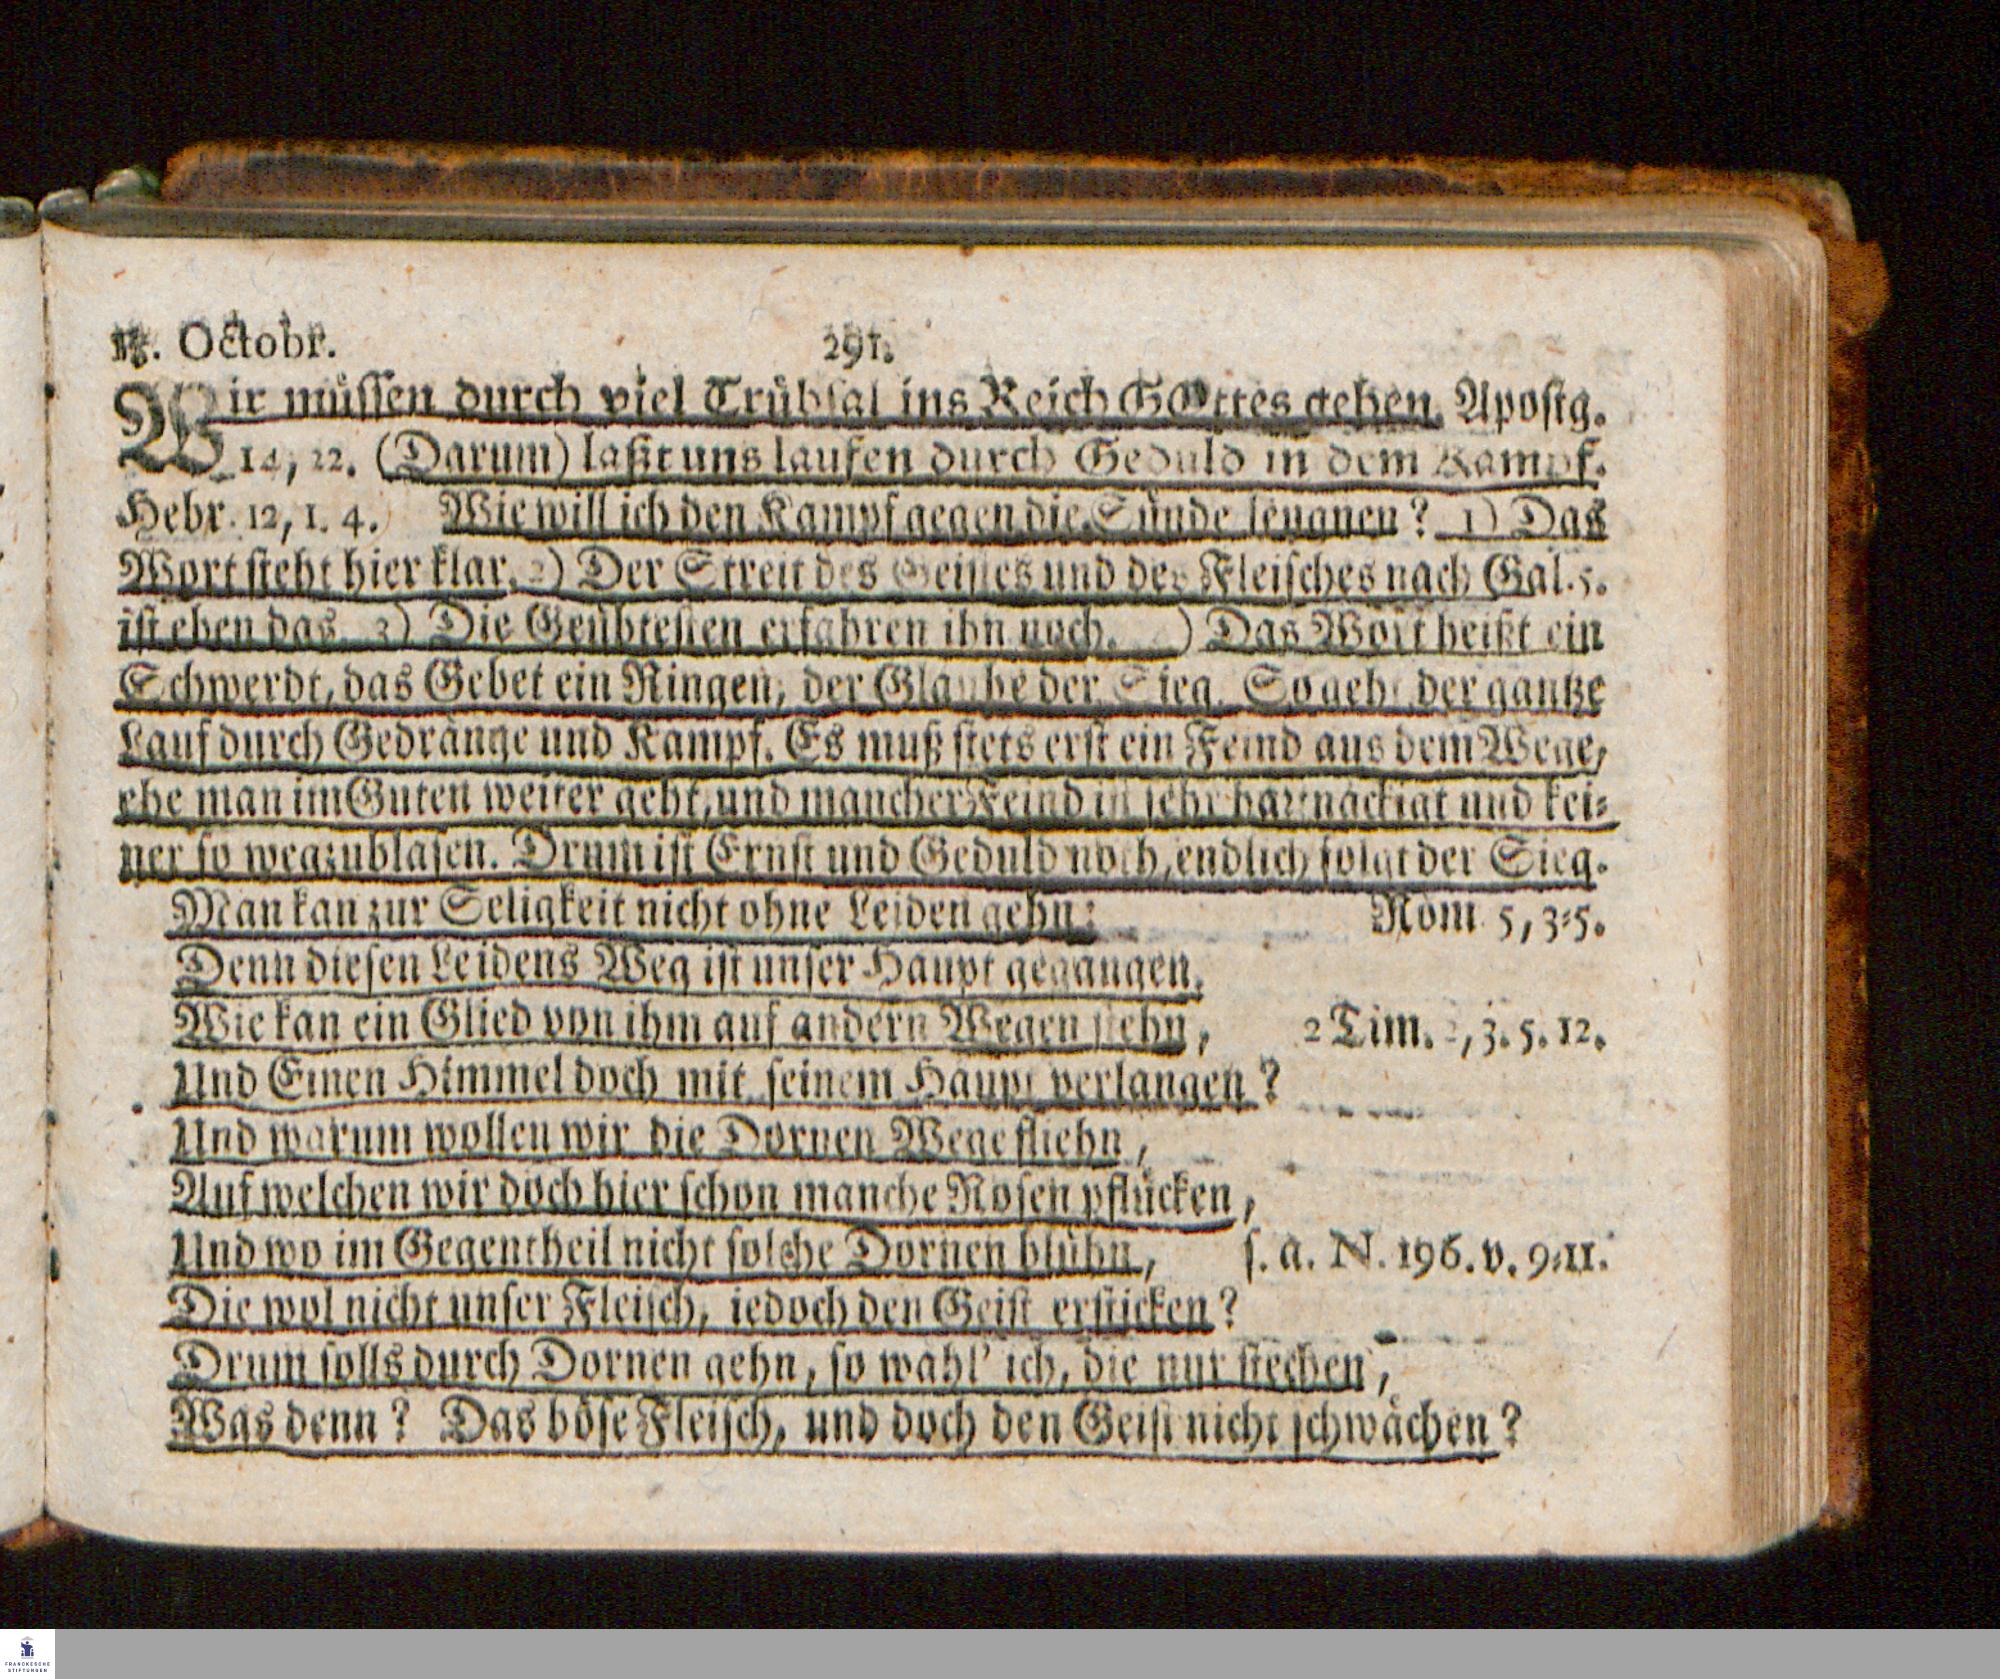 Octobr. 291.
Wir müssen durch viel Trübsal ins Reich GOttes gehen. Apostg.
14, 22. (Darum) laßt uns laufen durch Geduld in dem Kampf.
Hebr. 12, 1. 4. Wie will ich den Kampf gegen die Sünde leugnen? 1) Das
Wort steht hier klar. 2) Der Streit des Geistes und des Fleisches nach Gal. 5.
ist eben das. 3) Die Geübtesten erfahren ihn noch. ) Das Wort heißt ein
Schwerdt, das Gebet ein Ringen, der Glaube der Sieg. So geht der gantze
Lauf durch Gedränge und Kampf. Es muß stets erst ein Feind aus dem Wege,
ehe man im Guten weiter geht, und mancher Feind ist sehr hartnäckigt und kei-
ner so wegzublasen. Drum ist Ernst und Geduld noth, endlich folgt der Sieg.
Man kan zur Seligkeit nicht ohne Leiden gehn: Röm. 5, 3-5.
Denn diesen Leidens Weg ist unser Haupt gegangen.
Wie kan ein Glied von ihm auf andern Wegen stehn, 2 Tim. 2, 3. 5. 12.
Und Einen Himmel doch mit seinem Haupt verlangen?
Und warum wollen wir die Dornen Wege fliehn,
Auf welchen wir doch hier schon manche Rosen pflücken,
Und wo im Gegentheil nicht solche Dornen blühn, s. a. N. 196. v. 9-11.
Die wol nicht unser Fleisch, iedoch den Geist ersticken?
Drum solls durch Dornen gehn, so wähl' ich, die nur stechen,
Was denn? Das böse Fleisch, und doch den Geist nicht schwächen?
FRANCKESCHE
STIFTUNGEN